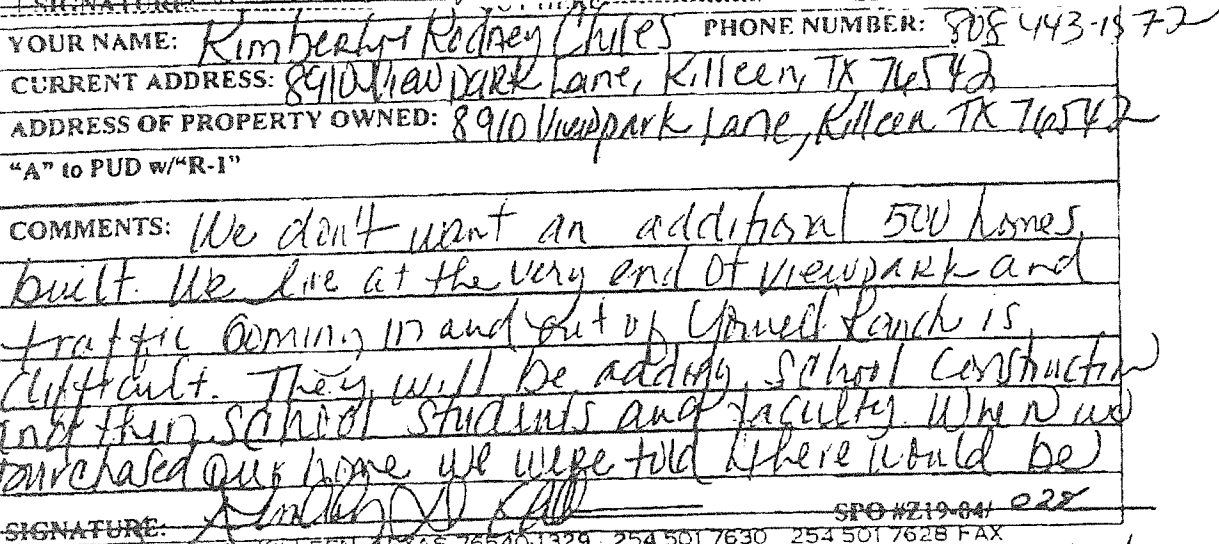 SIGNATURE:
YOUR NAME: Kimberly & Rodney Chiles PHONE NUMBER: 808 443-1572
CURRENT ADDRESS: 8910 Viewpark Lane, Killeen, TX 76542
ADDRESS OF PROPERTY OWNED: 8910 Viewpark Lane, Killeen TX 76542
"A" to PUD w/"R-1"
COMMENTS: We don't want an additional 500 homes
built. We live at the very end of viewpark and
traffic coming in and out of Yowell Ranch is
difficult. They will be adding school construction
and then school students and faculty. When we
purchased our home we were told there would be
SIGNATURE: SPO #Z19-04/ 028
KILLEEN, TEXAS 76540-1329 254 501 7630 254 501 7628 FAX